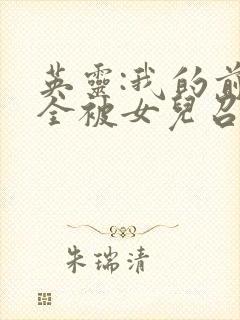 英靈:我的前
全被女兒召
朱瑞清